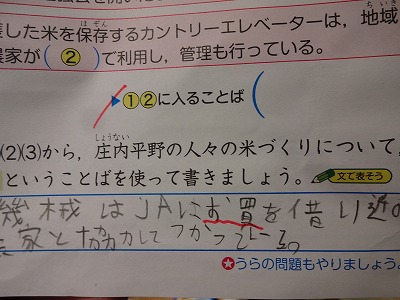 した米を保存するカントリーエレベーターは，地域
農家が（②）で利用し，管理も行っている。
▶①②に入ることば（
(2)(3)から，庄内平野の人々の米づくりについて，
ということばを使って書きましょう。 文で表そう
機械はJAにお置を借り近の
家と協力してつかっている。
★うらの問題もやりましょう